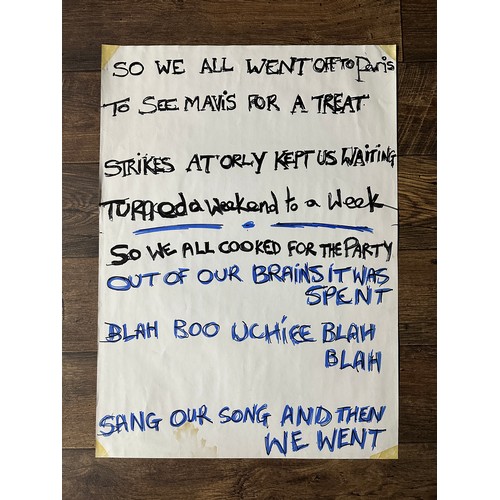 SO WE ALL WENT OFF TO Paris
TO SEE MAVIS FOR A TREAT
STRIKES AT ORLY KEPT US WAITING
TURNED a weekend to a week
SO WE ALL COOKED FOR THE PARTY
OUT OF OUR BRAINS IT WAS
SPENT
BLAH BOO UCHIEE BLAH
BLAH
SANG OUR SONG AND THEN
WE WENT